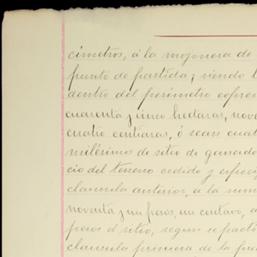 címetros, á la mojonera de
punto de partida; siendo l
dentro del perímetro
cuarenta y cinco hectaras, nove
cuatro centiaras, ó sean cuat
milésimos de sitio de ganado
cio del terreno cedido y
clausula anterior, á la suma
noventa y un pesos, un centavo, a
pesos el sitio, segun se pactó
clausula primera de la pre